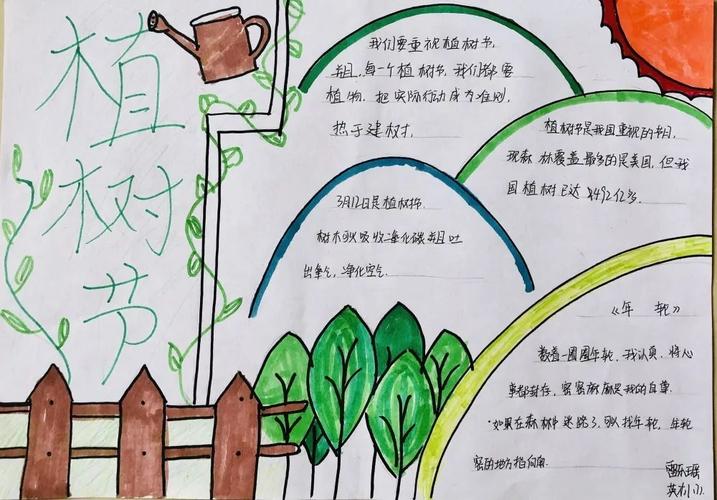 植树节
我们要重视植树节,
并且,每一个植树节,我们都要
植物,把实际行动成为准则,
热于建树,
植树节是我国重视的节日,
现森林覆盖最多的是美国,但我
国植树已达492亿多.
3月12日是植树节.
树木可以吸收净化碳并且吐
出氧气,净化空气.
《年轮》
数着一圈圈年轮,我认真,将心
事都封存,密密麻麻是我的自尊.
如果在森林中迷路了,可以找年轮,年轮
密的地方指向南.